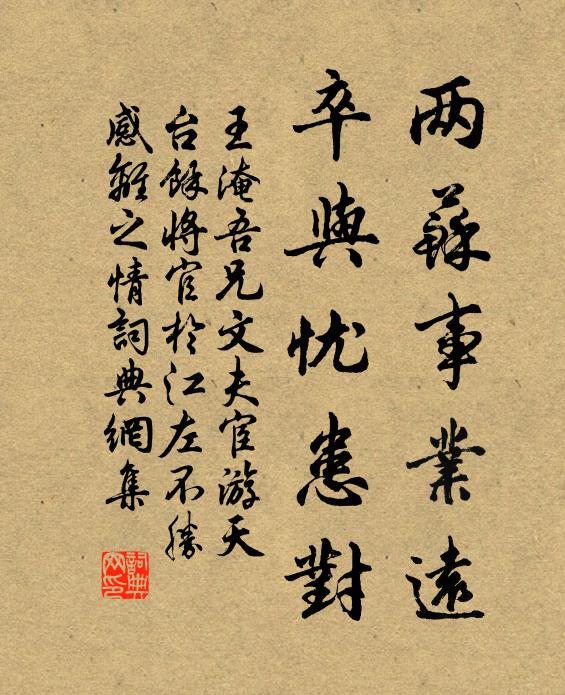 两蘇事業遠
卒與忧患對
王淹吾兄文夫宦游天
台餘將官於江左不勝
感離之情詞典網集
詞典
网印